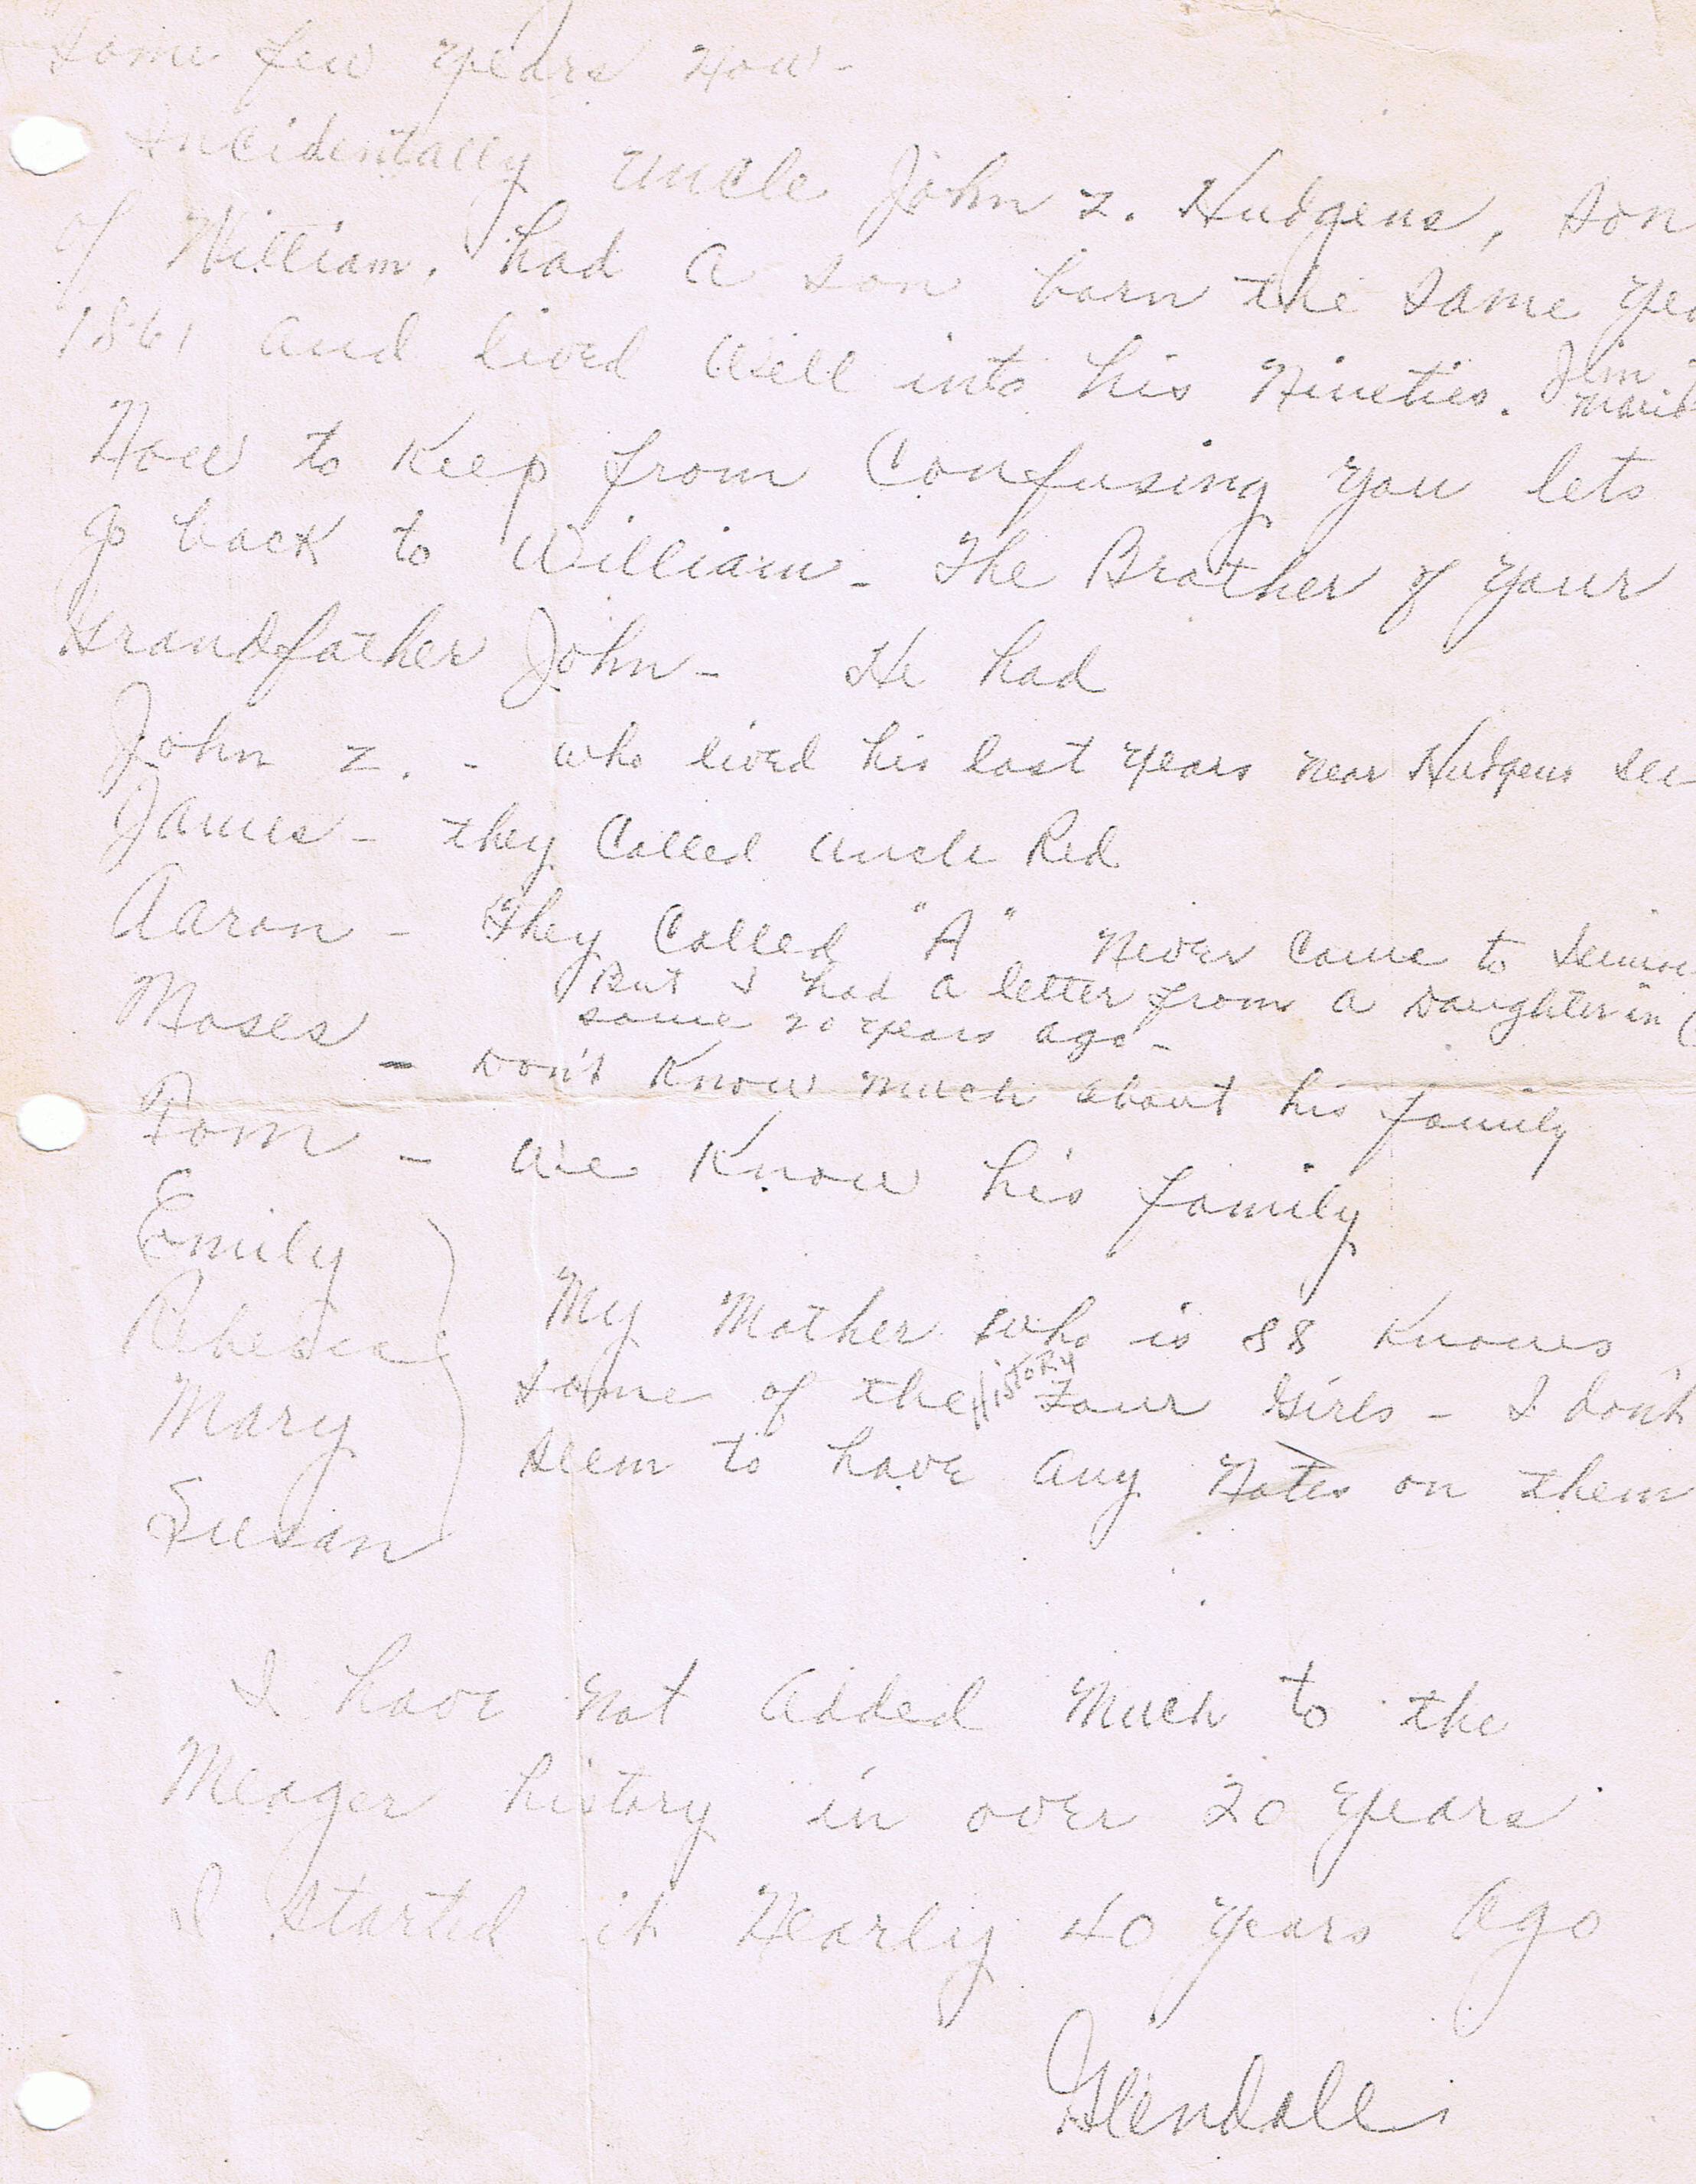 Some few years now -
Incidentally Uncle John Z. Hudgens, son
of William, had a son born the same yea
1861 and lived well into his Nineties. Jim
Now to Keep from Confusing you lets
go back to William - The Brother of your
Grandfather John - He had
John Z. - who lived his last years near Hudgens
James - they Called Uncle Red
Aaron - They Called "A" Never Came to
But I had a letter from a Daughter in
some 20 years ago -
Moses - Don't Know much about his family
Tom - We Know his family
Emily
Rebecca
Mary
Susan
My Mother who is 88 Knows
some of the History Four Girls - I don't
seem to have any Notes on them
I have not added Much to the
Meager history in over 20 years
I started it Nearly 40 years ago
Glendall